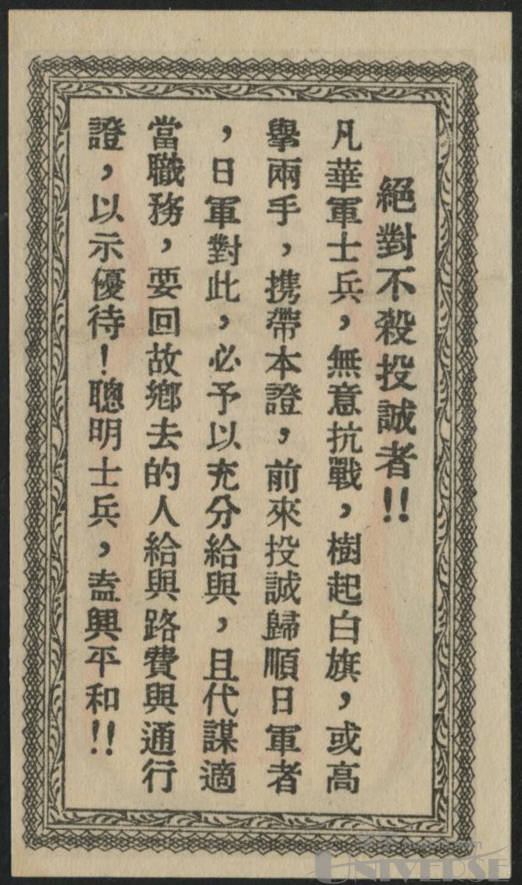 絕對不殺投誠者!!
凡華軍士兵，無意抗戰，樹起白旗，或高
舉兩手，携帶本證，前來投誠歸順日軍者
，日軍對此，必予以充分給與，且代謀適
當職務，要回故鄉去的人給與路費與通行
證，以示優待！聰明士兵，盍興平和!!
UNIVERSE